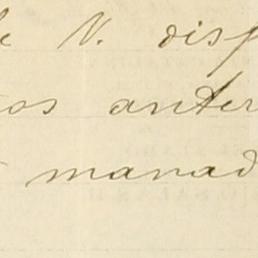 le V. disp
tos anter
manad